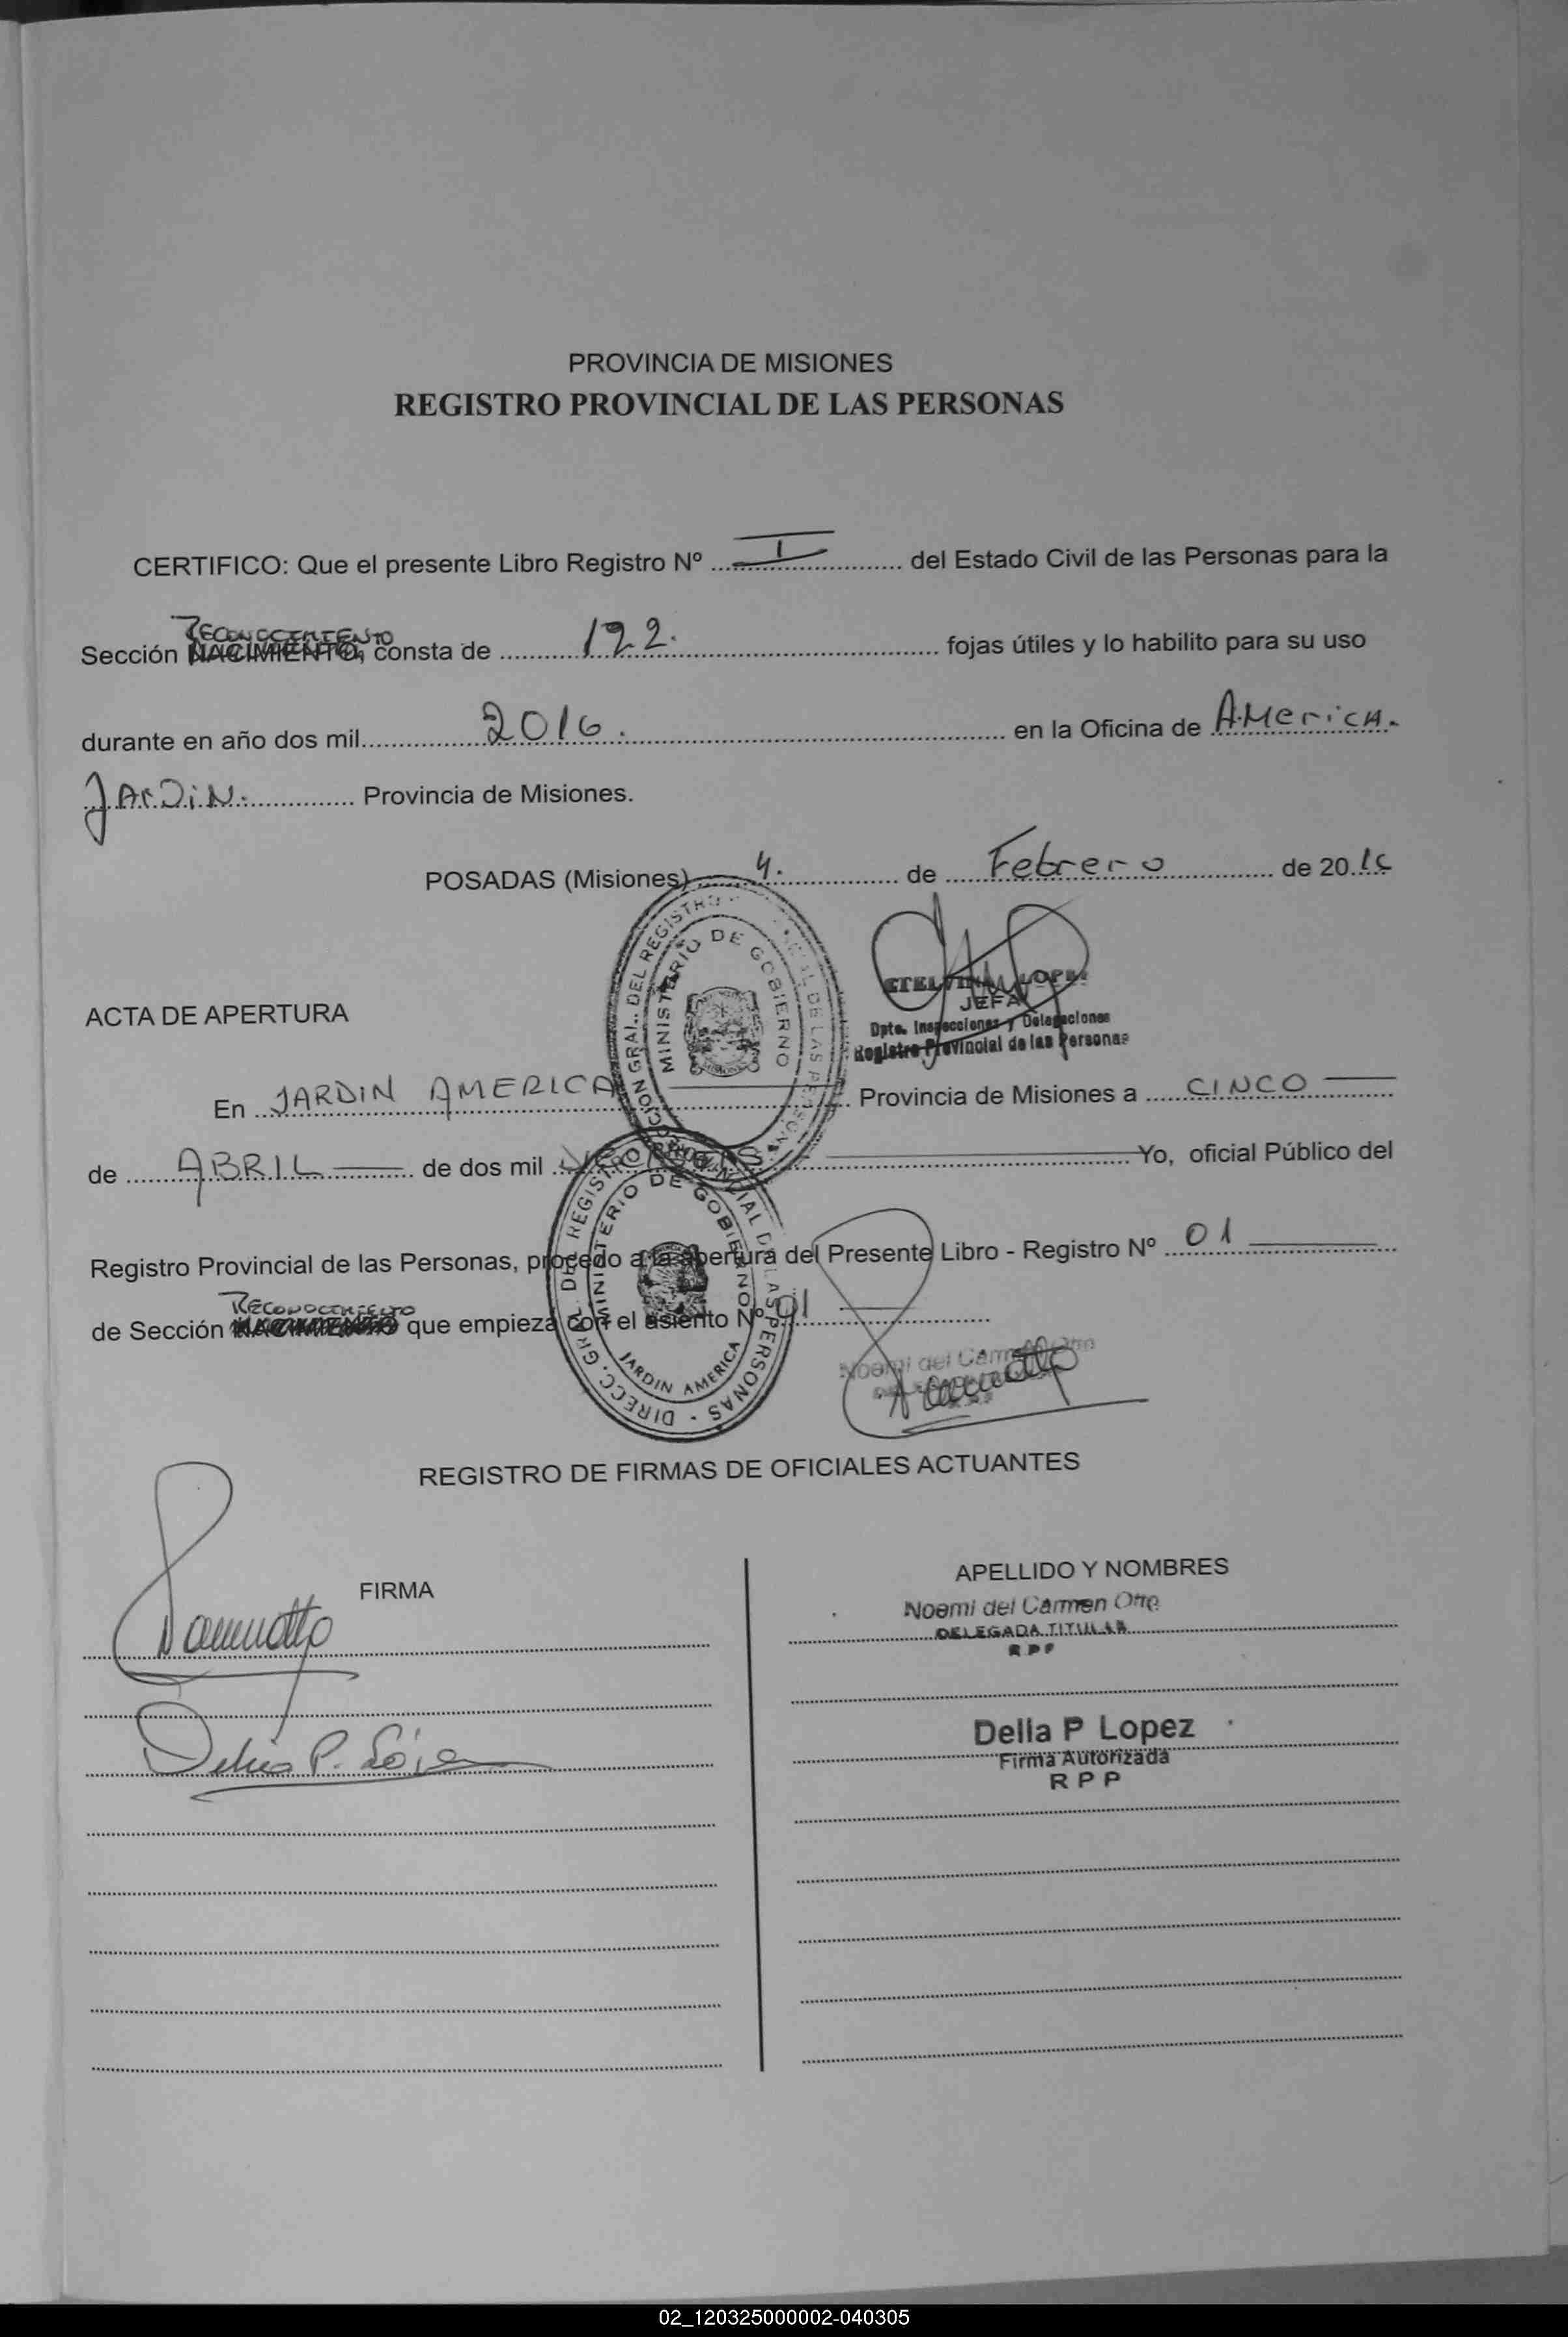 PROVINCIA DE MISIONES
REGISTRO PROVINCIAL DE LAS PERSONAS
CERTIFICO: Que el presente Libro Registro Nº I del Estado Civil de las Personas para la
RECONOCIMIENTO
Sección NACIMIENTO, consta de 192. fojas útiles y lo habilito para su uso
durante en año dos mil 2016. en la Oficina de AMericA.
JArDiN. Provincia de Misiones.
POSADAS (Misiones) 4. de Febrero de 20 16
DIRECCION GRAL. DEL REGISTRO PROVINCIAL DE LAS PERSONAS
MINISTERIO DE GOBIERNO
ETELVINA LOPEZ
JEFA
Dpto. Inspecciones y Delegaciones
Registro Provincial de las Personas
ACTA DE APERTURA
En JARDIN AMERICA Provincia de Misiones a CINCO
de ABRIL de dos mil Yo, oficial Público del
Registro Provincial de las Personas, procedo a la apertura del Presente Libro - Registro Nº 01
RECONOCIMIENTO
de Sección NACIMIENTO que empieza con el asiento Nº 01
DIRECC. GRAL. DEL REGISTRO PROVINCIAL DE LAS PERSONAS -
MINISTERIO DE GOBIERNO
JARDIN AMERICA
Noemi del Carmen Otto
REGISTRO DE FIRMAS DE OFICIALES ACTUANTES
FIRMA
APELLIDO Y NOMBRES
Noemi del Carmen Otto
DELEGADA TITULAR
R P P
Delia P. López
Delia P Lopez
Firma Autorizada
R P P
02_120325000002-040305